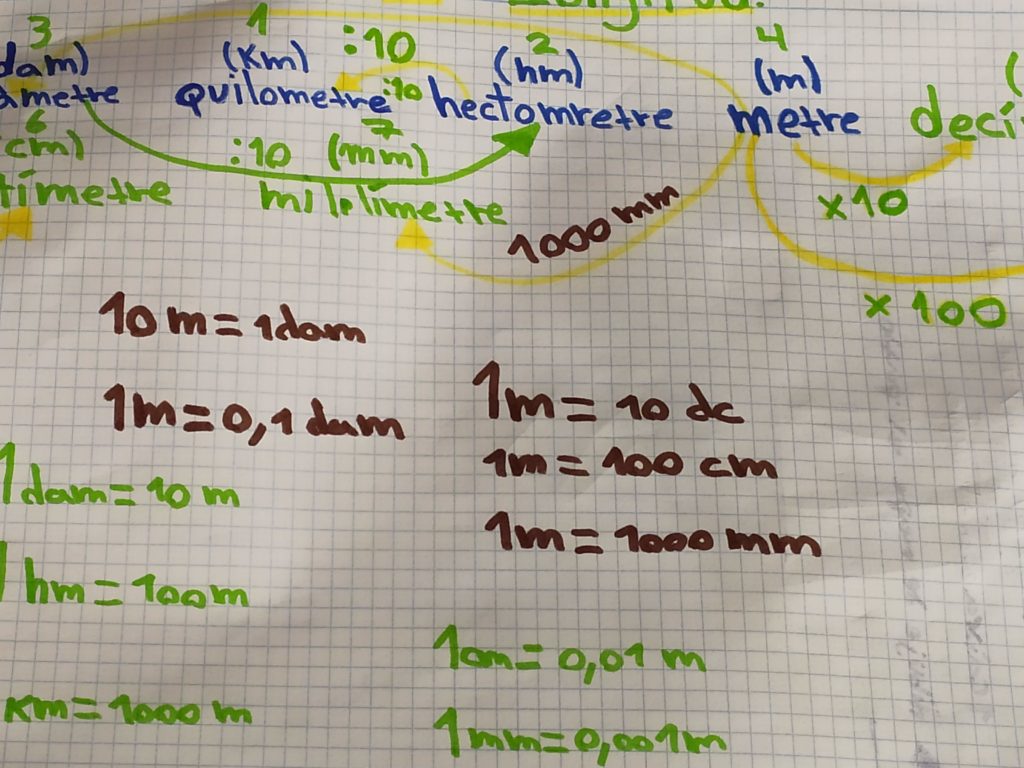 3 1 :10 2 4
dam) (Km) (hm) (m) (
àmetre quilometre :10 hectomretre metre decí
6 7
cm) :10 (mm)
tímetre mil·límetre x10
1000 mm
x 100
10 m = 1dam
1m = 0,1 dam
1m = 10 dc
1m = 100 cm
1dam = 10 m
1m = 1000 mm
1 hm = 100m
1cm = 0,01 m
km = 1000 m
1mm = 0,001m